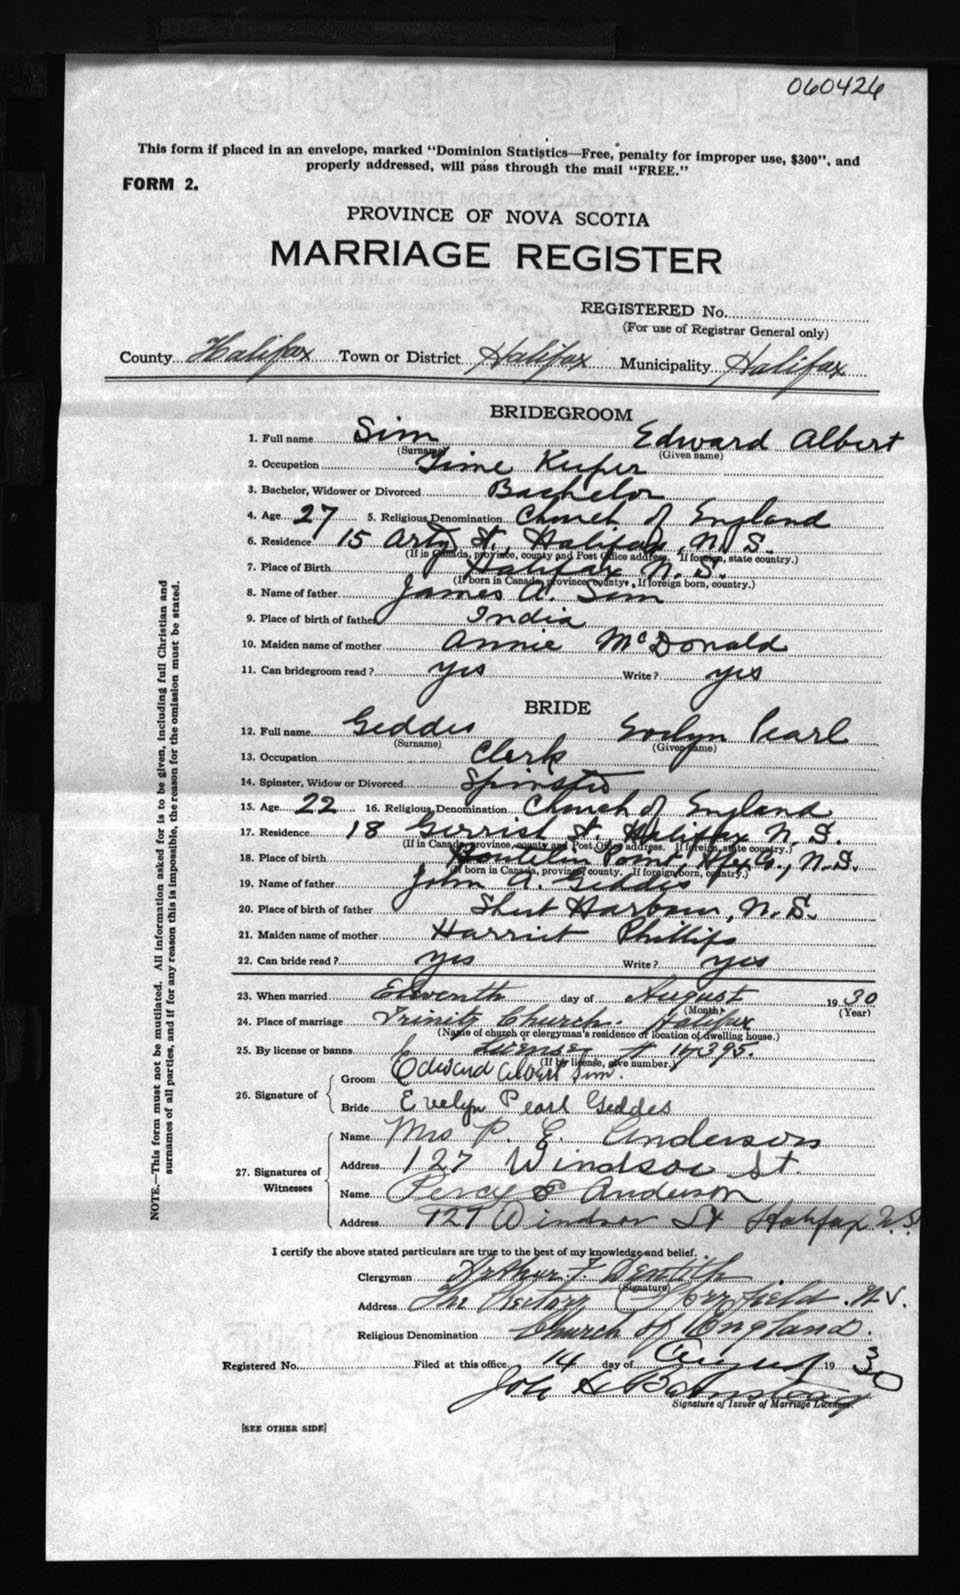 060426
This form if placed in an envelope, marked "Dominion Statistics—Free, penalty for improper use, $300", and
properly addressed, will pass through the mail "FREE."
FORM 2.
PROVINCE OF NOVA SCOTIA
MARRIAGE REGISTER
REGISTERED No.
(For use of Registrar General only)
County Halifax Town or District Halifax Municipality Halifax
BRIDEGROOM
1. Full name Sim Edward Albert
(Surname) (Given name)
2. Occupation Time Keeper
3. Bachelor, Widower or Divorced Bachelor
4. Age 27 5. Religious Denomination Church of England
6. Residence 15 Arty St., Halifax, N.S.
(If in Canada, province, county and Post Office address. If foreign, state country.)
7. Place of Birth Halifax N.S.
(If born in Canada, province county. If foreign born, country.)
8. Name of father James A. Sim
9. Place of birth of father India
10. Maiden name of mother Annie McDonald
11. Can bridegroom read? yes Write? yes
BRIDE
12. Full name Geddes Evelyn Pearl
(Surname) (Given name)
13. Occupation Clerk
14. Spinster, Widow or Divorced Spinster
15. Age 22 16. Religious Denomination Church of England
17. Residence 18 Gerrish St. Halifax N.S.
(If in Canada, province, county and Post Office address. If foreign, state country.)
18. Place of birth Boutelier Point Hfx Co., N.S.
(If born in Canada, province, county. If foreign born, country.)
19. Name of father John A. Geddes
20. Place of birth of father Sheet Harbour, N.S.
21. Maiden name of mother Harriet Phillips
22. Can bride read? yes Write? yes
23. When married Eleventh day of August 1930
(Month) (Year)
24. Place of marriage Trinity Church. Halifax
(Name of church or clergyman's residence or location of dwelling house.)
25. By license or banns License # 14395.
(If by license, give number.)
26. Signature of Groom Edward Albert Sim.
Bride Evelyn Pearl Geddes
27. Signatures of Witnesses Name Mrs P. E. Anderson
Address 127 Windsor St.
Name Percy E Anderson
Address 127 Windsor St Halifax N.S.
I certify the above stated particulars are true to the best of my knowledge and belief.
Clergyman Arthur F.
(Signature)
Address The Rectory N.S.
Religious Denomination Church of England.
Registered No. Filed at this office 14 day of August 1930
Signature of Issuer of Marriage Licenses.
[SEE OTHER SIDE]
NOTE.—This form must not be mutilated. All information asked for is to be given, including full Christian and
surnames of all parties, and if for any reason this is impossible, the reason for the omission must be stated.